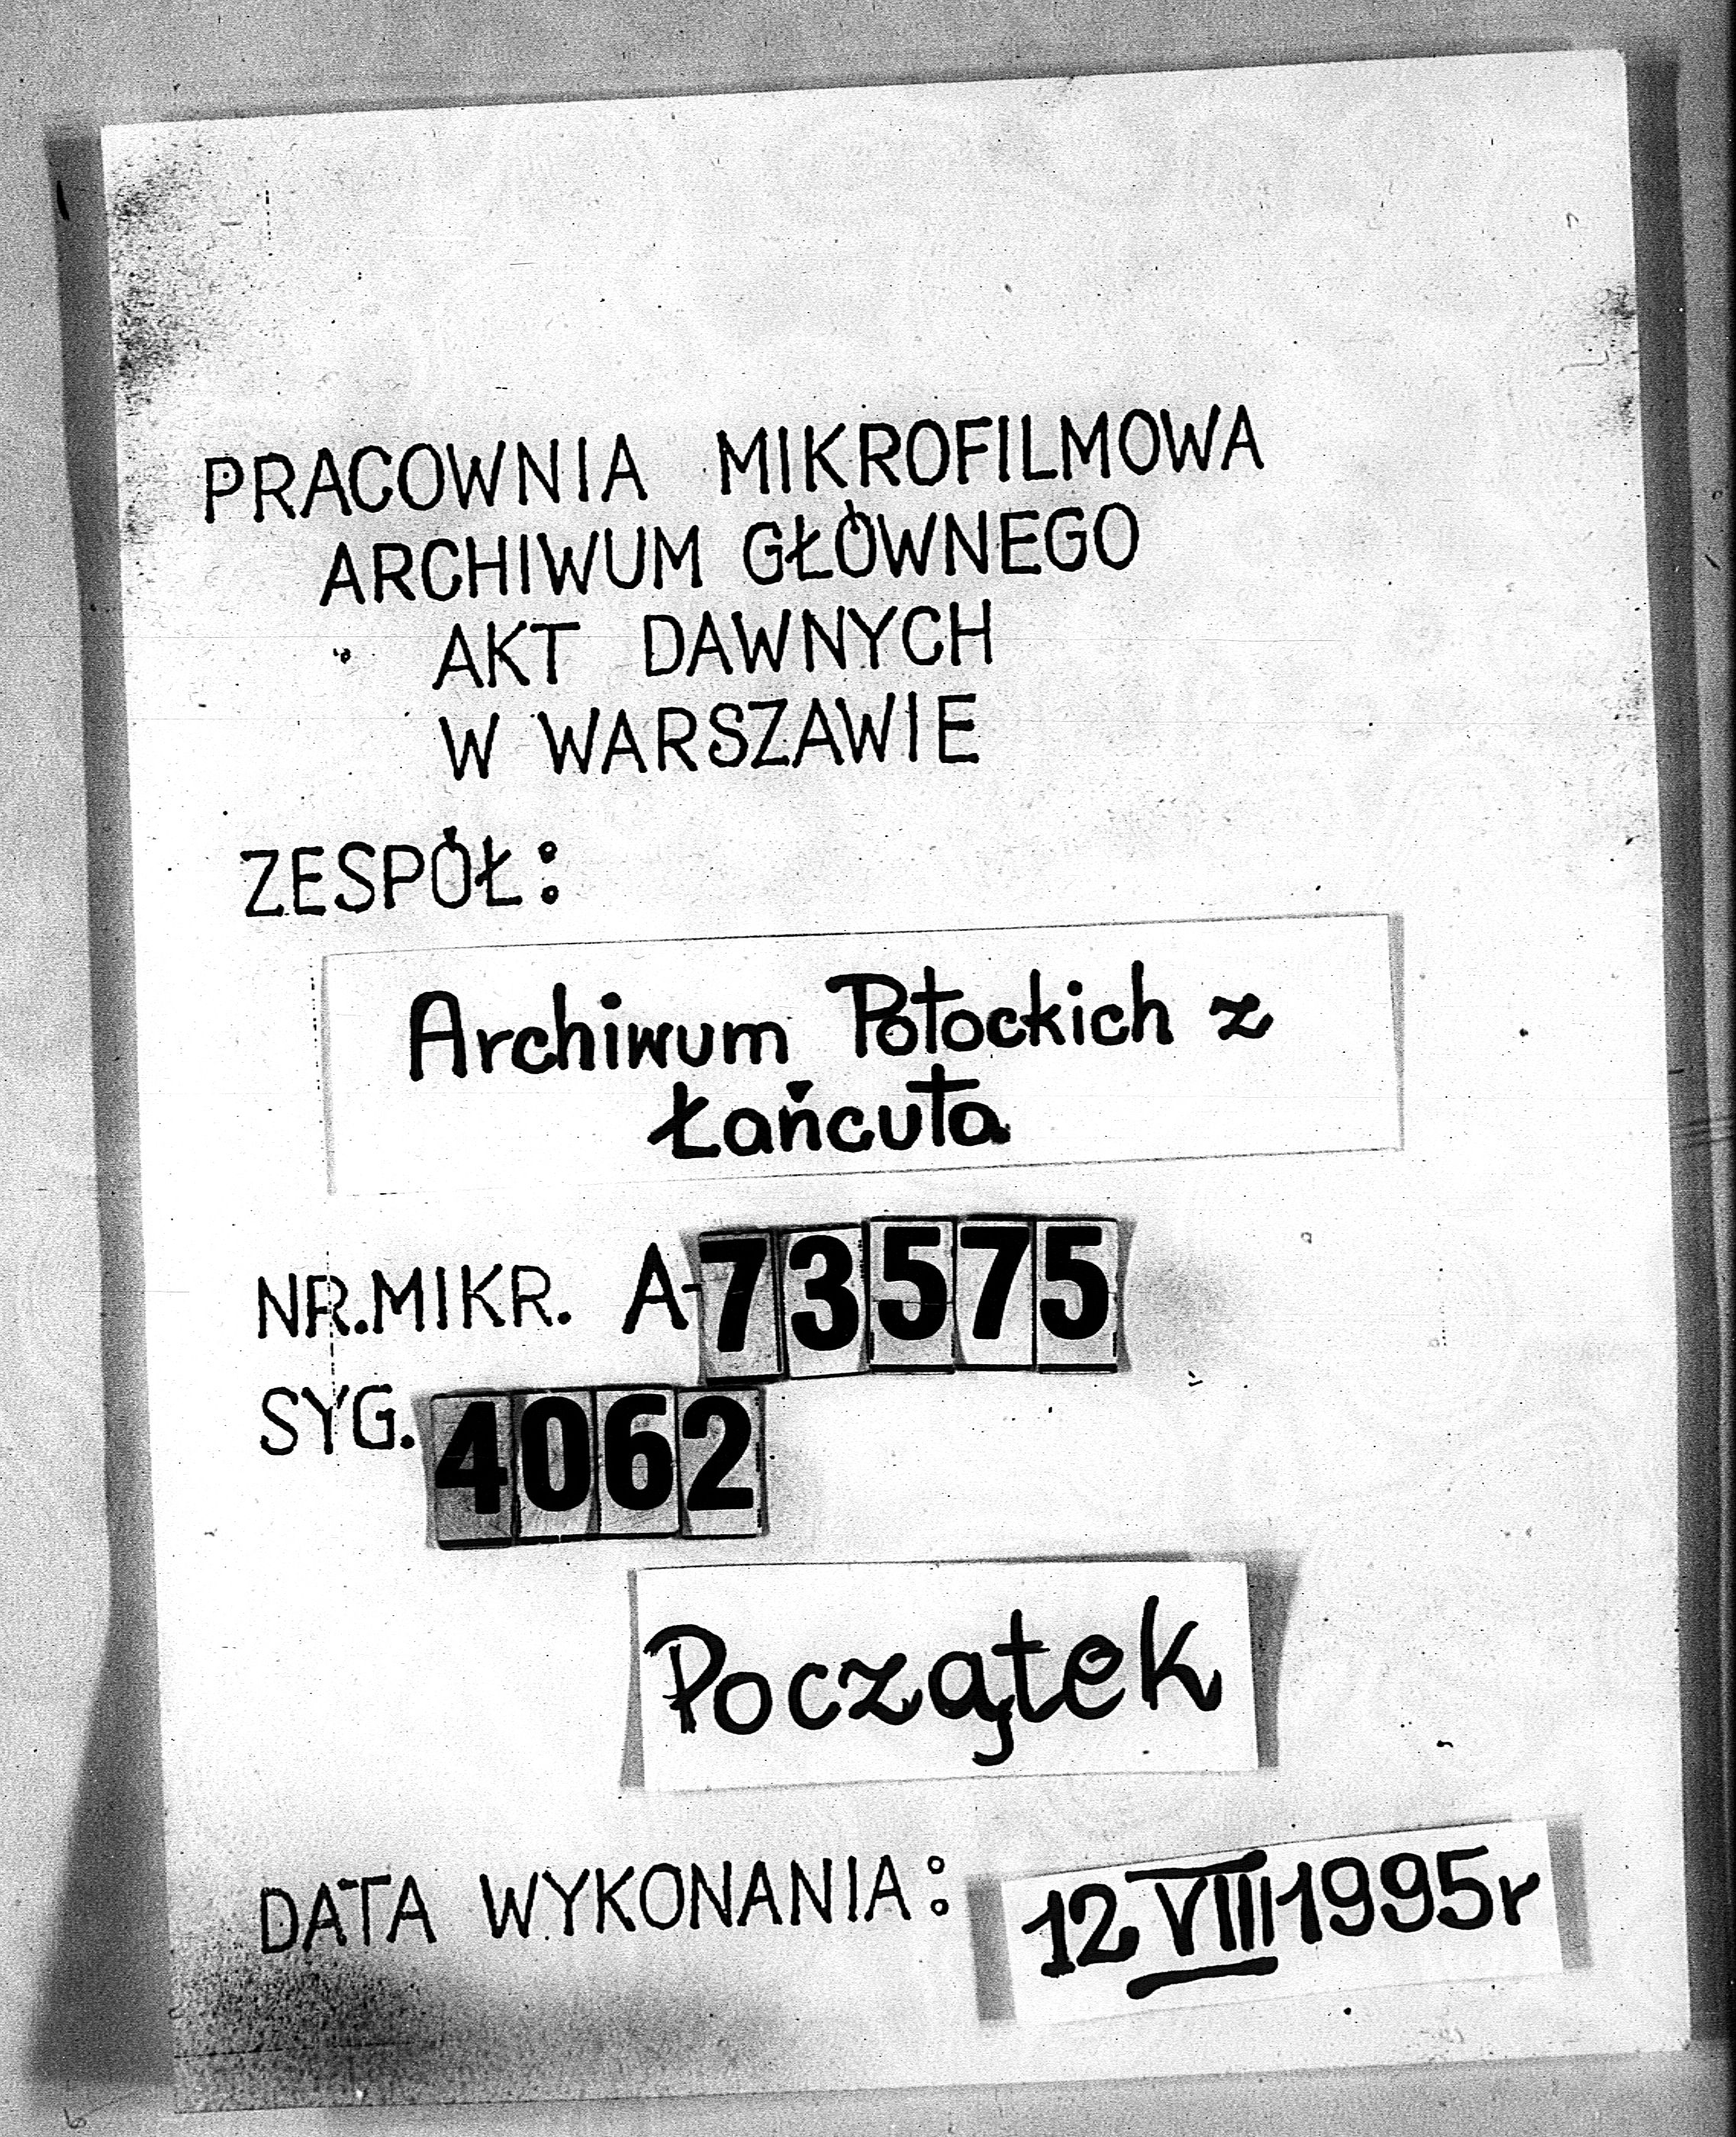 PRACOWNIA MIKROFILMOWA
ARCHIWUM GŁÓWNEGO
AKT DAWNYCH
W WARSZAWIE
ZESPÓŁ:
Archiwum Potockich z
Łańcuta
NR.MIKR. A-73575
SYG. 4062
Początek
DATA WYKONANIA: 12 VIII 1995r